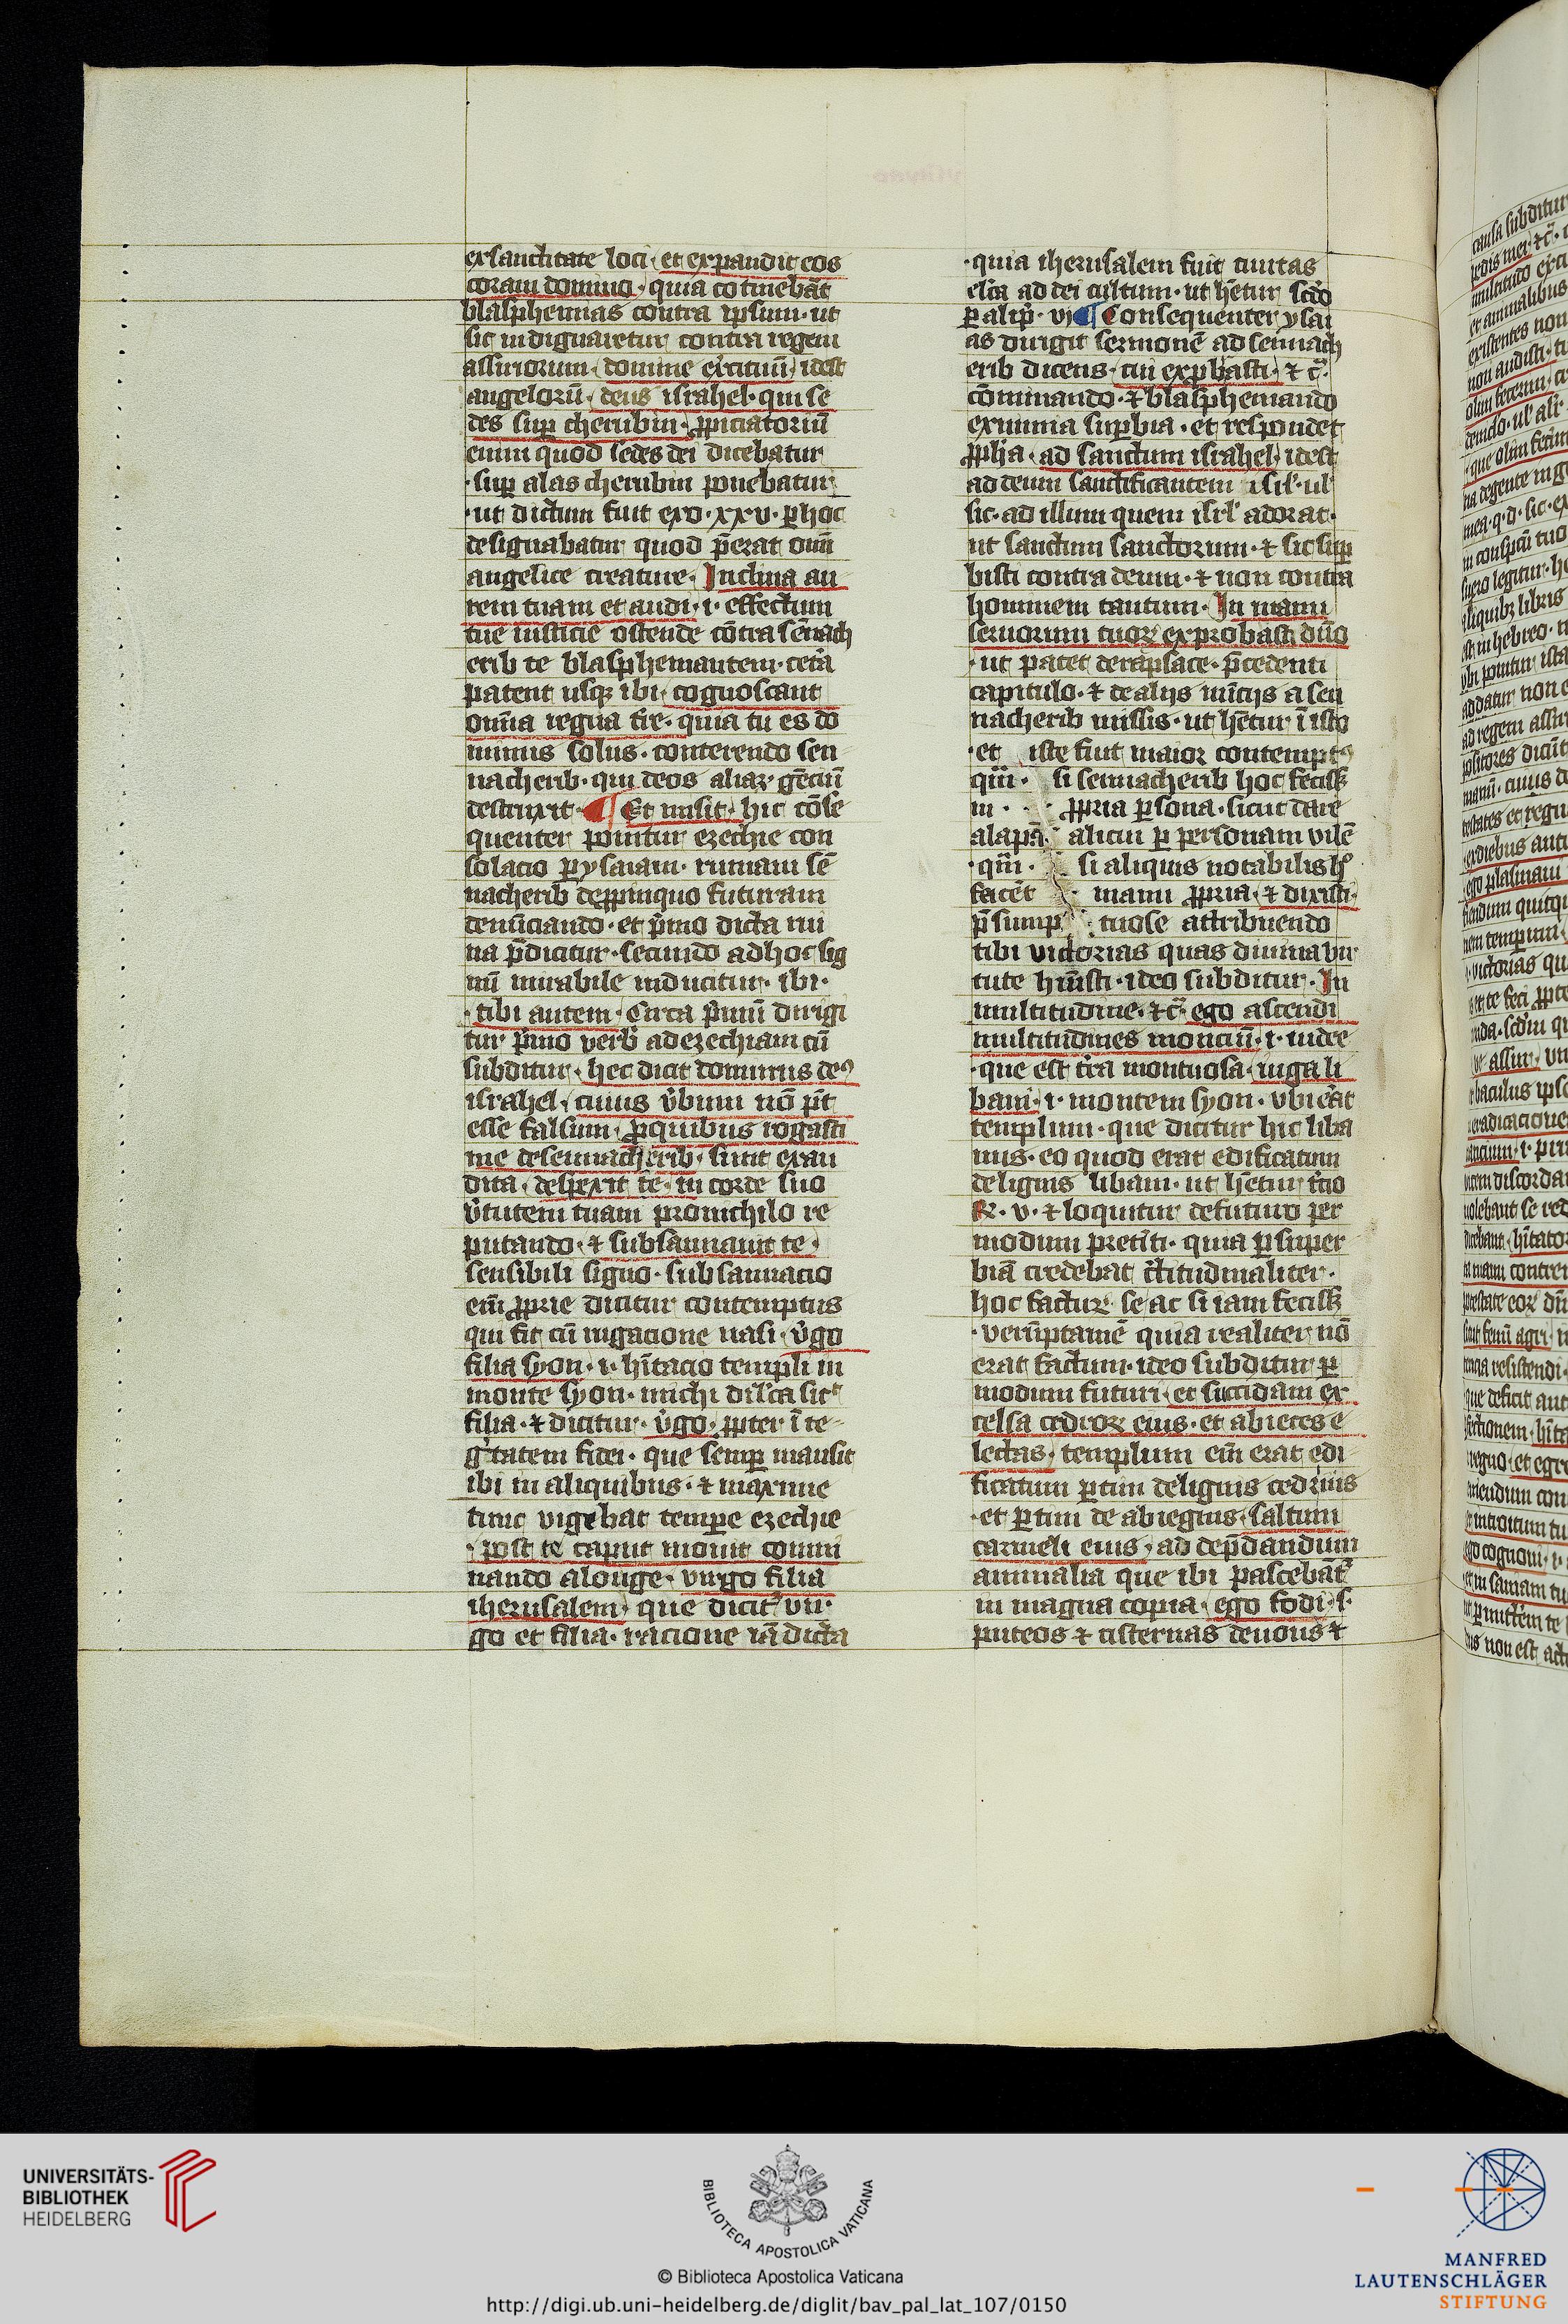 ex sanctitate loci. et expandit eos
coram domino. quia cōtinebāt
blasphemias contra ipsum. ut
sic indignaretur contra regem
assiriorum. domine exercituū. idest
angelorū. deus israhel. qui se
des suꝑ cherubin. ꝓpiciatoriū
enim quod sedes dei dicebatur
suꝑ alas cherubin ponebatur
ut dictum fuit exo. xxv. ꝑ hoc
designabatur quod p̄erat omī
angelice creature. Inclina au
rem tuam et audi. i. effectum
tue iusticie ostende cōtra sēnach
erib te blasphemantem. cetͣa
patent usqꝫ ibi. cognoscant
omīa regna tr̄e. quia tu es do
minus solus. conterendo sen
nacherib. qui deos aliaꝝ gēciū
destruxit. ¶ Et misit. hic cōse
quenter ponitur ezechie con
solacio ꝑ ysaiam. ruinam sē
nacherib de ꝓpinquo futuram
denūciando. et p̄mo dicta rui
na p̄dicitur. secundo ad hoc sig
nū mirabile inducitur. ibi.
tibi autem. Circa p̄mū dirigi
tur p̄mo verb̄ ad ezechiam cū
subditur. hec dicit dominus deꝰ
israhel. cuius v̄bum nō pōt
esse falsum. ꝓ quibus rogasti
me de sennacherib. sunt exau
dita. despexit te. in corde suo
v̄tutem tuam pro nichilo re
putando. ⁊ subsannauit te.
sensibili signo. subsannacio
em̄ ꝓprie dicitur contemptus
qui fit cū rugacione nasi. v̄go
filia syon. i. hītacio templi in
monte syon. michi dilc̄a sicᵗ
filia. ⁊ dicitur. v̄go. ꝓpter īte-
gͥtatem fidei. que semꝑ mansit
ibi in aliquibus. ⁊ maxime
tunc vigebat tempe ezechie
post te caput mouit comi
nando a longe. virgo filia
iherusalem. que dicitᷣ vir
go et filia. racione iā dicta
quia iherusalem fuit ciuitas
elc̄a ad dei cultum. ut hētur scd̄o
ꝑalip̄. vj. ¶ Consequenter ysai
as dirigit sermonē ad sennach
erib dicens. cui exꝓbasti. ⁊c̄.
cōminando. ⁊ blasphemando
ex nimia suꝑbia. et respondet
ꝓph̄a. ad sanctum israhel. idest
ad deum sanctificantem isrl̄. ul̄
sic. ad illum quem isrl̄ adorat.
ut sanctum sanctorum. ⁊ sic suꝑ
bisti contra deum. ⁊ non contra
hominem tantum. In manu
seruorum tuoꝝ exprobasti dn̄o
ut patet de rapsace. p̄cedenti
capitulo. ⁊ de alijs nūcijs a sen
nacherib missis. ut hētur ī isto
et iste fuit maior contemptꝰ
qm̄. si sennacherib hoc fecissꝫ
in ꝓpria ꝑsona. sicut dare
alapā. alicui ꝑ personam vilē
qm̄. si aliquis notabilis hͦ
facēt manu ꝓpria. ⁊ dixisti.
p̄sump tuose attribuendo
tibi victorias quas diuina vir
tute hūisti. ideo subditur. In
multitudine. ⁊c̄. ego ascendi
multitudines monciū. i. iudee
que est tr̄a montuosa. iuga li
bani. i. montem syon. vbi erāt
templum. que dicitur hic liba
nus. eo quod erat edificatum
de lignis libani. ut hētur tͥcio
R. v. ⁊ loquitur de futuro per
modum pret̄iti. quia ꝑ super
biā credebat c̄titudinaliter.
hoc factuꝝ se ac si iam fecissꝫ
verūptamē quia realiter nō
erat factum. ideo subditur ꝑ
modum futuri. et succidam ex
celsa cedroꝝ eius. et abietes e
lectas. templum em̄ erat edi
ficatum ꝑtim de lignis cedrinis
et ꝑtim de abiegnis. saltum
carmeli eius. ad dep̄dandum
animalia que ibi pascebātᷣ
in magna copia. ego fodi. s.
puteos ⁊ cisternas de nouo ⁊
UNIVERSITÄTS-
BIBLIOTHEK
HEIDELBERG
BIBLIOTECA APOSTOLICA VATICANA
© Biblioteca Apostolica Vaticana
http://digi.ub.uni-heidelberg.de/diglit/bav_pal_lat_107/0150
MANFRED
LAUTENSCHLÄGER
STIFTUNG